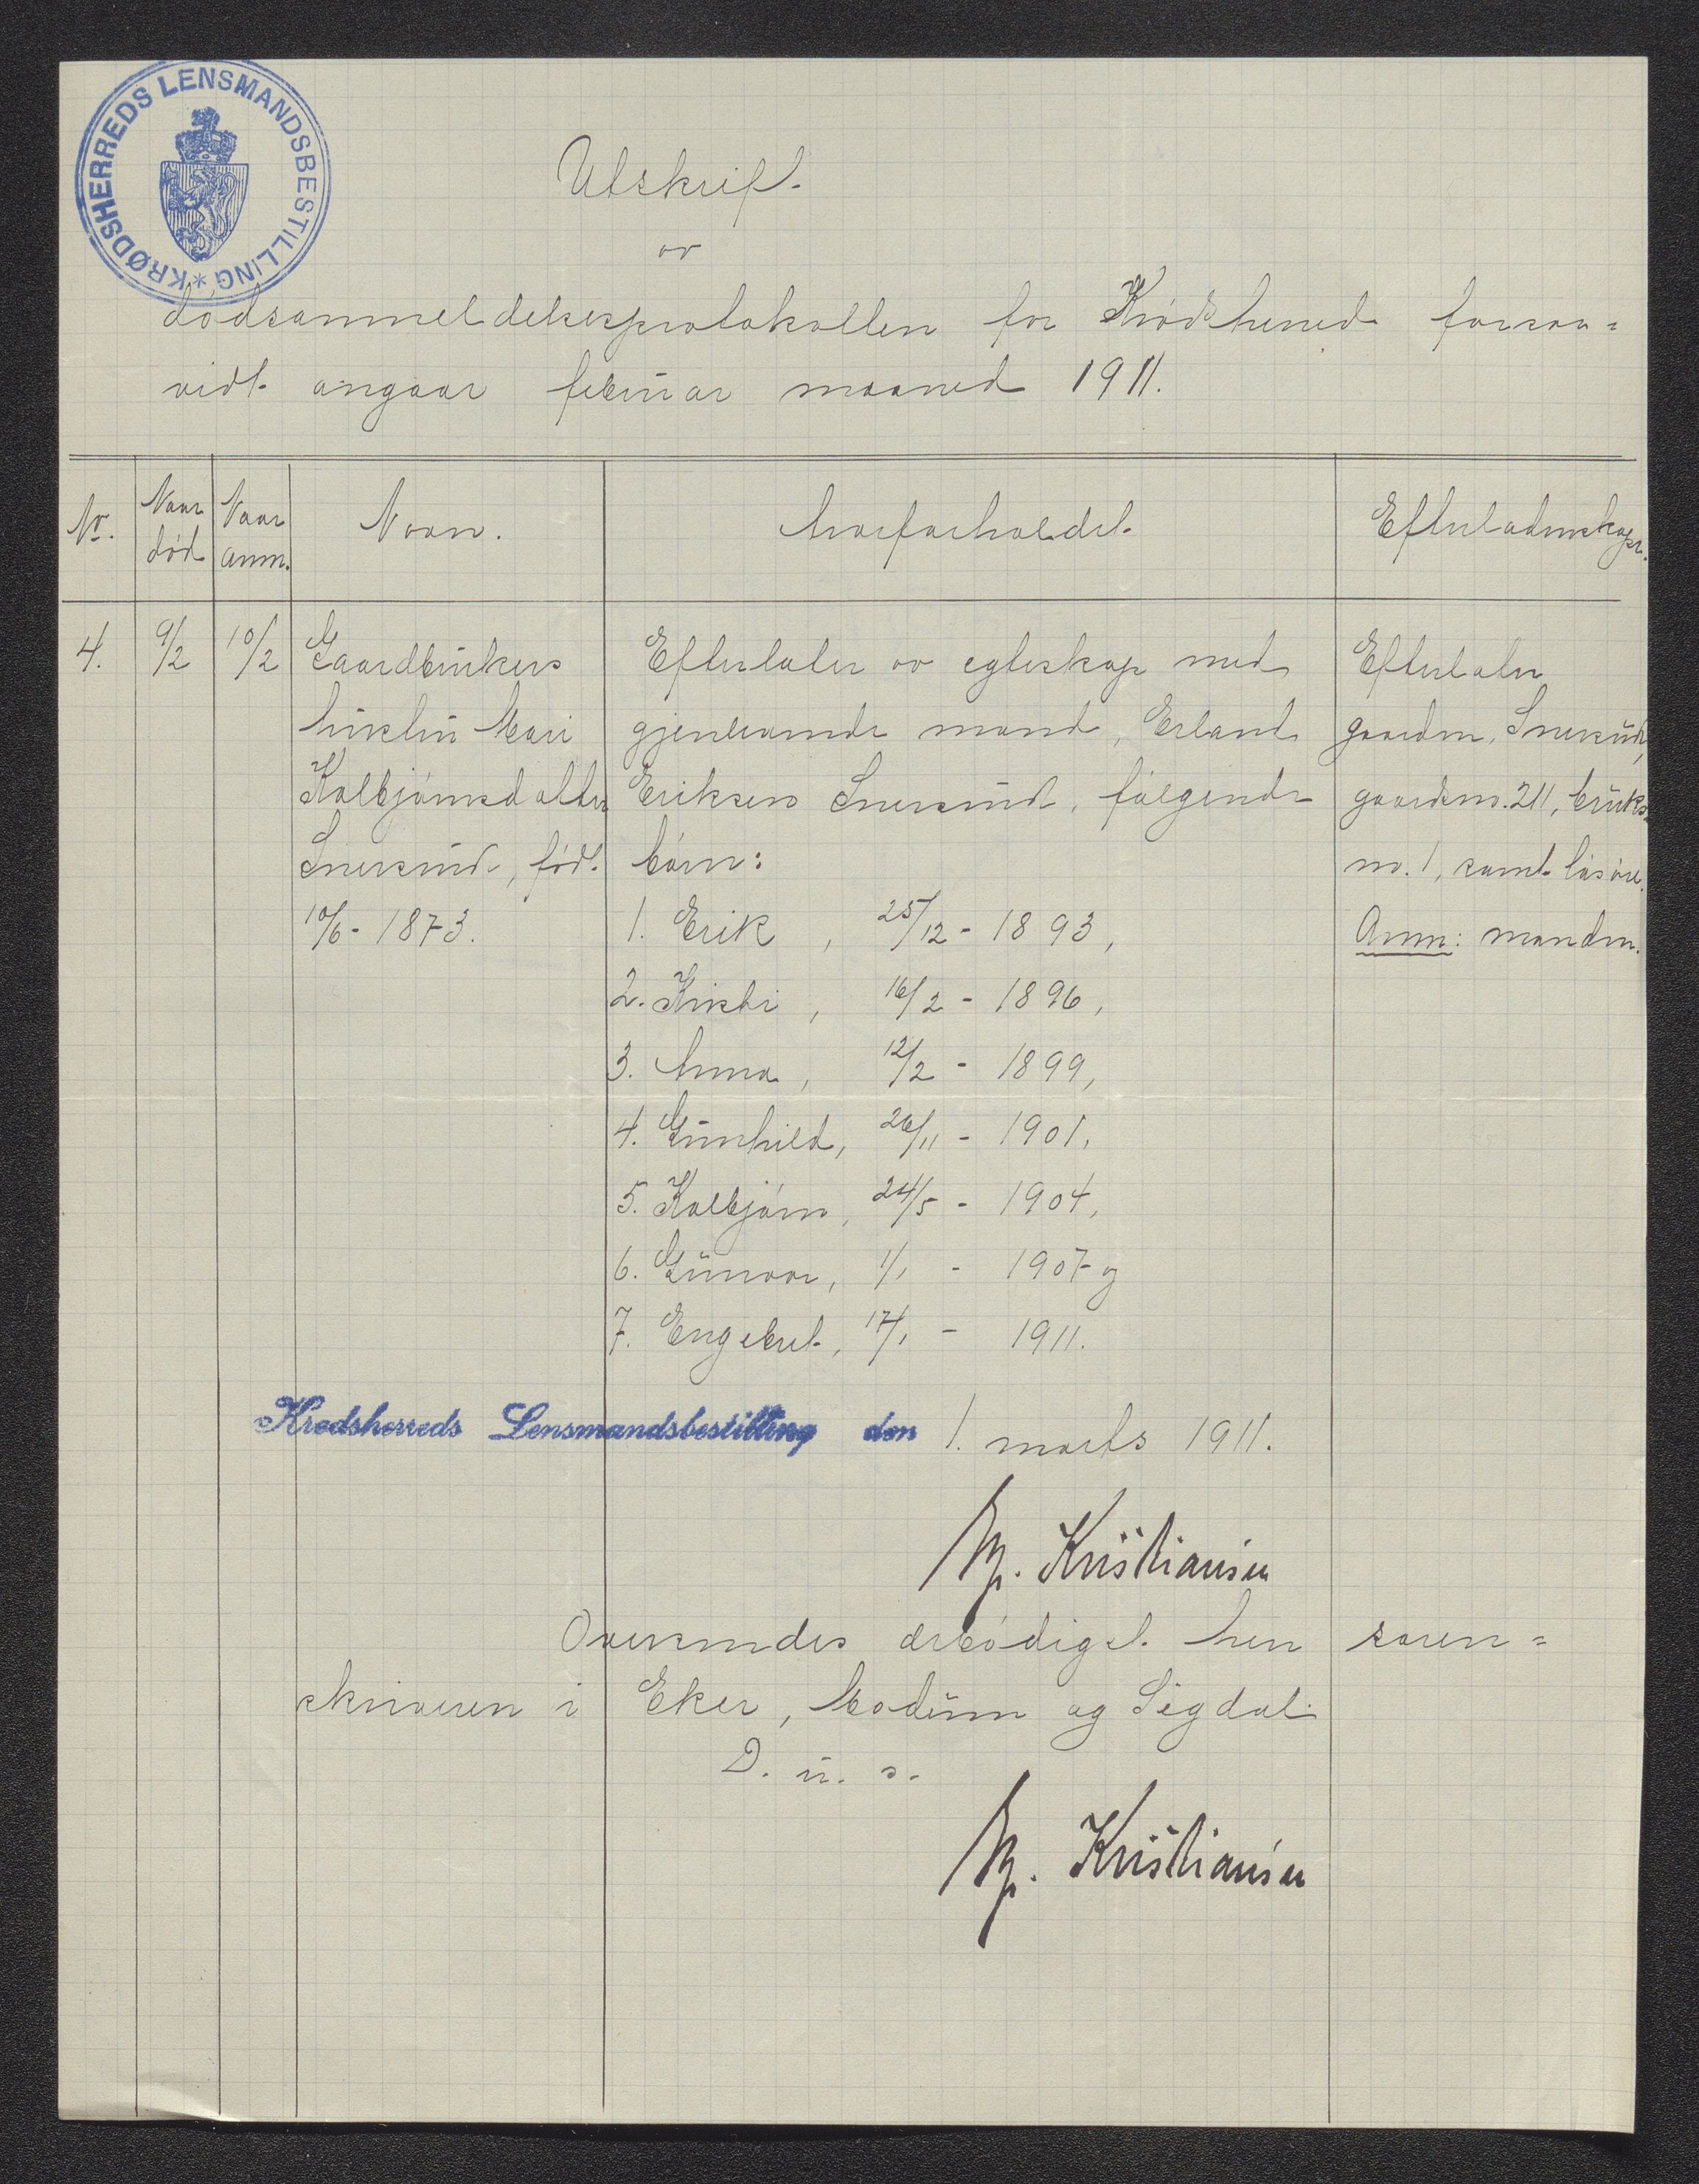 KRØDSHERREDS LENSMANDSBESTILLING *
Utskrift
av
dødsanmeldelsesprotokollen for Krødsherred forsaa=
vidt angaar februar maaned 1911.
No. | Naar død | Naar anm. | Navn. | Arveforholdet | Efterladenskaper.
4. | 9/2 | 10/2 | Gaardbrukers | Efterlater av egteskap med | Efterlater
hustru Mari | gjenlevende mand, Erland | gaarden, Snersrud,
Kolbjørnsdatter | Eriksen Snersrud, følgende | gaardsno. 211, bruks
Snersrud, født | børn: | no. 1, samt løsøre.
10/6 - 1873. | 1. Erik, 25/12 - 1893, | Anm: manden.
2. Kristi, 16/2 - 1896,
3. Anna, 12/2 - 1899,
4. Gunhild, 26/11 - 1901,
5. Kolbjørn, 24/5 - 1904,
6. Gunvor, 1/1 - 1907 og
7. Engebret, 17/1 - 1911.
Krødsherreds Lensmandsbestilling den 1. marts 1911.
M. Kristiansen
Oversendes ærbødigst herr soren=
skriveren i Eker, Modum og Sigdal
D. u. s.
M. Kristiansen